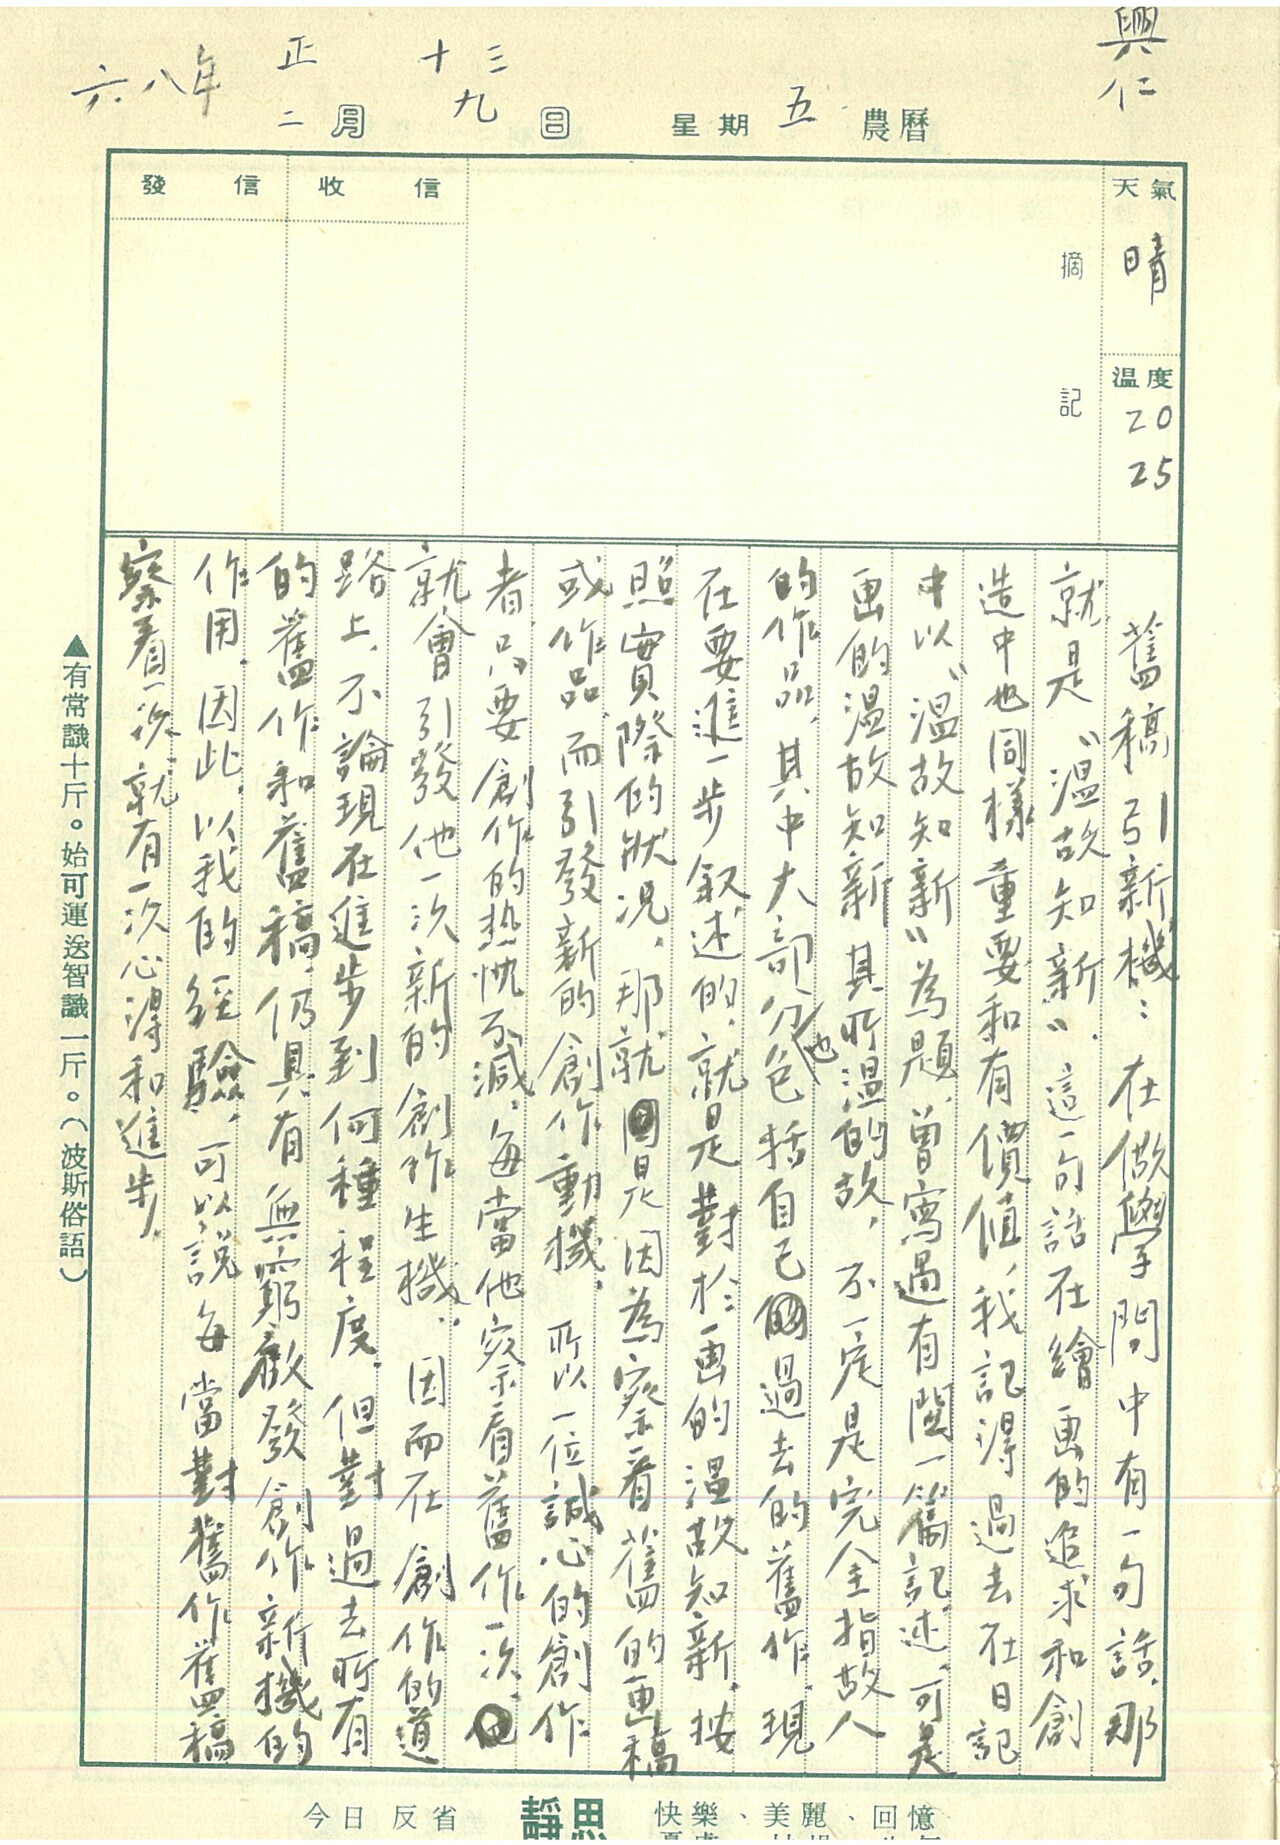 興仁
六八年 正二月 十三九日 星期五 農曆
天氣 晴
溫度 20 25
摘記
收信
發信
舊稿引新機：在做學問中有一句話，那
就是〝溫故知新〞。這一句話在繪画的追求和創
造中也同樣重要和有價值，我記得過去在日記
中以〝溫故知新〞為題，曾寫過有關一篇記述，可是
画的溫故知新其所溫的故，不一定是完全指故人
的作品，其中大部分也包括自己過去的舊作，現
在要進一步叙述的，就是對於画的溫故知新，按
照實際的狀況，那就是因為察看舊的画稿
或作品，而引發新的創作動機。所以一位誠心的創作
者，只要創作的热忱不減，每當他察看舊作一次，
就會引發他一次新的創作生機。因而在創作的道
路上，不論現在進步到何種程度，但對過去所有
的舊作和舊稿，仍具有無窮啟發創作新機的
作用，因此，以我的經驗，可以說每當對舊作舊稿
察看一次就有一次心得和進步。
▲有常識十斤。始可運送智識一斤。（波斯俗語）
今日反省 靜思 快樂、美麗、回憶